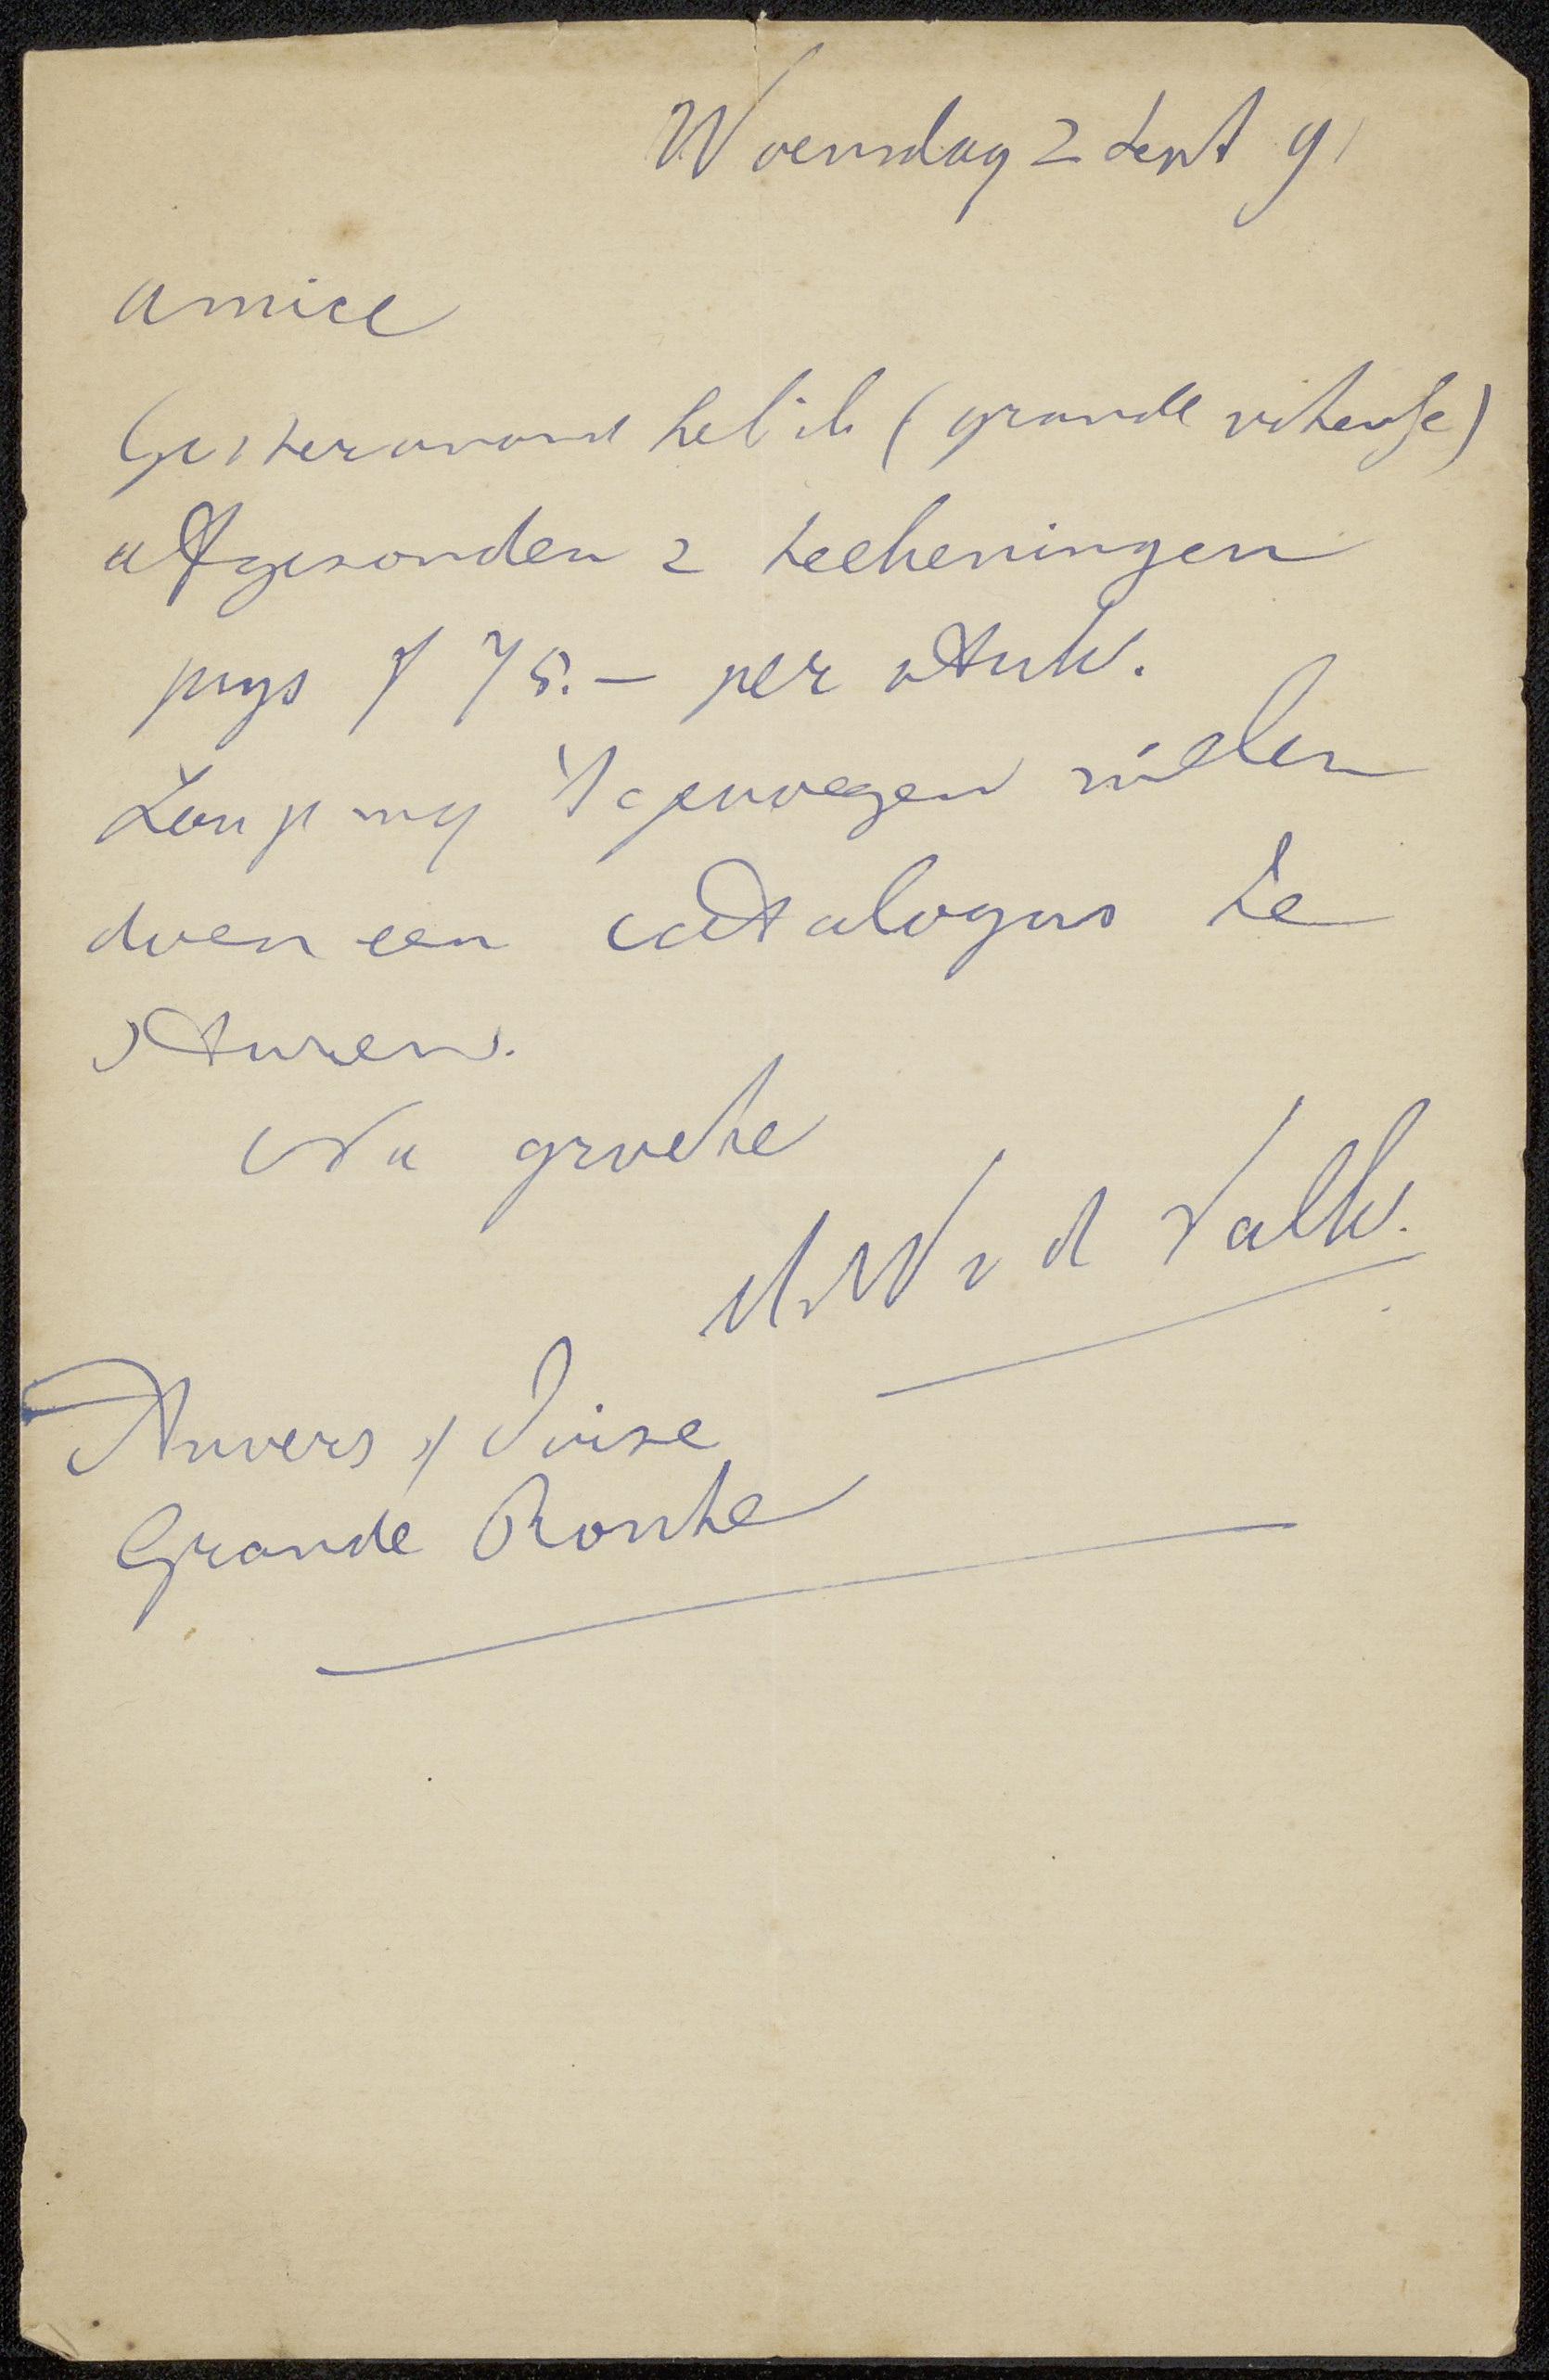 Woensdag 2 Sept 91
Amice
Gisteravond heb ik (grande vitesse)
afgezonden 2 teekeningen
prys f 75.- per stuk.
Zou je my 't genoegen willen
doen een catalogus te
sturen.
Na groete
M. W v d Valk.
Auvers s/ Oise
Grande Route